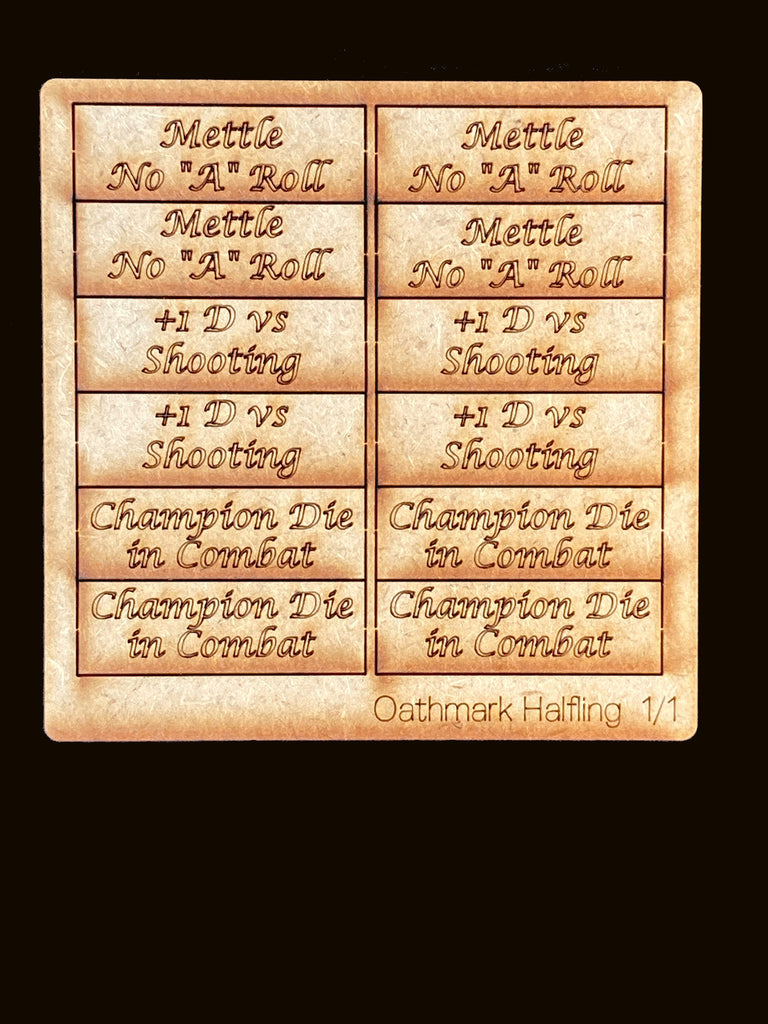 Mettle
No "A" Roll
Mettle
No "A" Roll
Mettle
No "A" Roll
Mettle
No "A" Roll
+1 D vs
Shooting
+1 D vs
Shooting
+1 D vs
Shooting
+1 D vs
Shooting
Champion Die
in Combat
Champion Die
in Combat
Champion Die
in Combat
Champion Die
in Combat
Oathmark Halfling 1/1